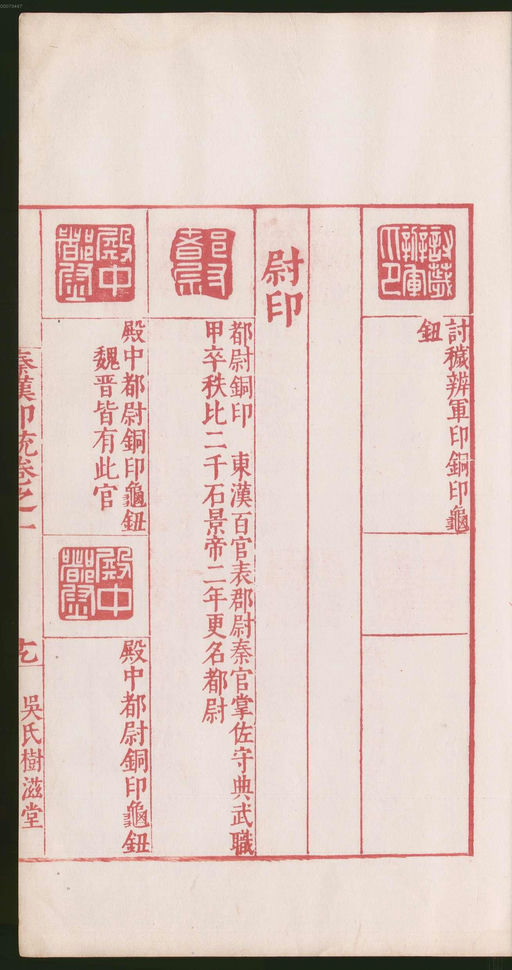 00073447
討穢辨軍印銅印龜
鈕
尉印
都尉
都尉銅印　東漢百官表郡尉秦官掌佐守典武職
甲卒秩比二千石景帝二年更名都尉
殿中
都尉
殿中都尉銅印龜鈕
魏晋皆有此官
殿中
都尉
殿中都尉銅印龜鈕
秦漢印統卷之一
吳氏樹滋堂